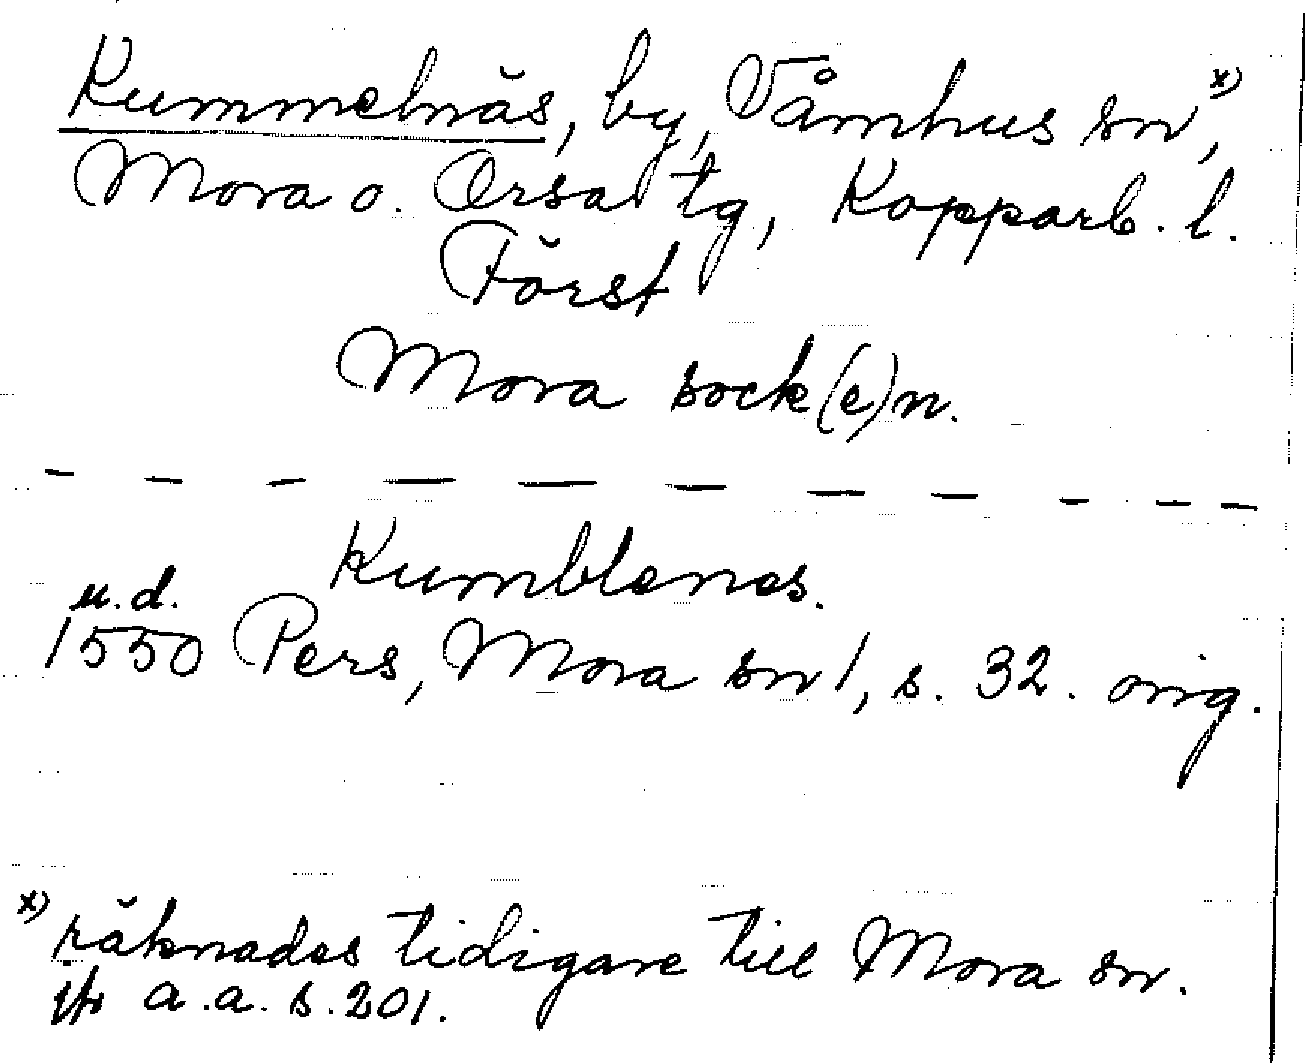 Kummelnäs, by, Våmhus sn x),
Mora o. Orsa tg, Kopparb. l.
Först
Mora sock(e)n.
Kumblenes.
u.d.
1550 Pers, Mora sn 1, s. 32. orig.
x) räknades tidigare till Mora sn.
jfr a.a. s. 201.